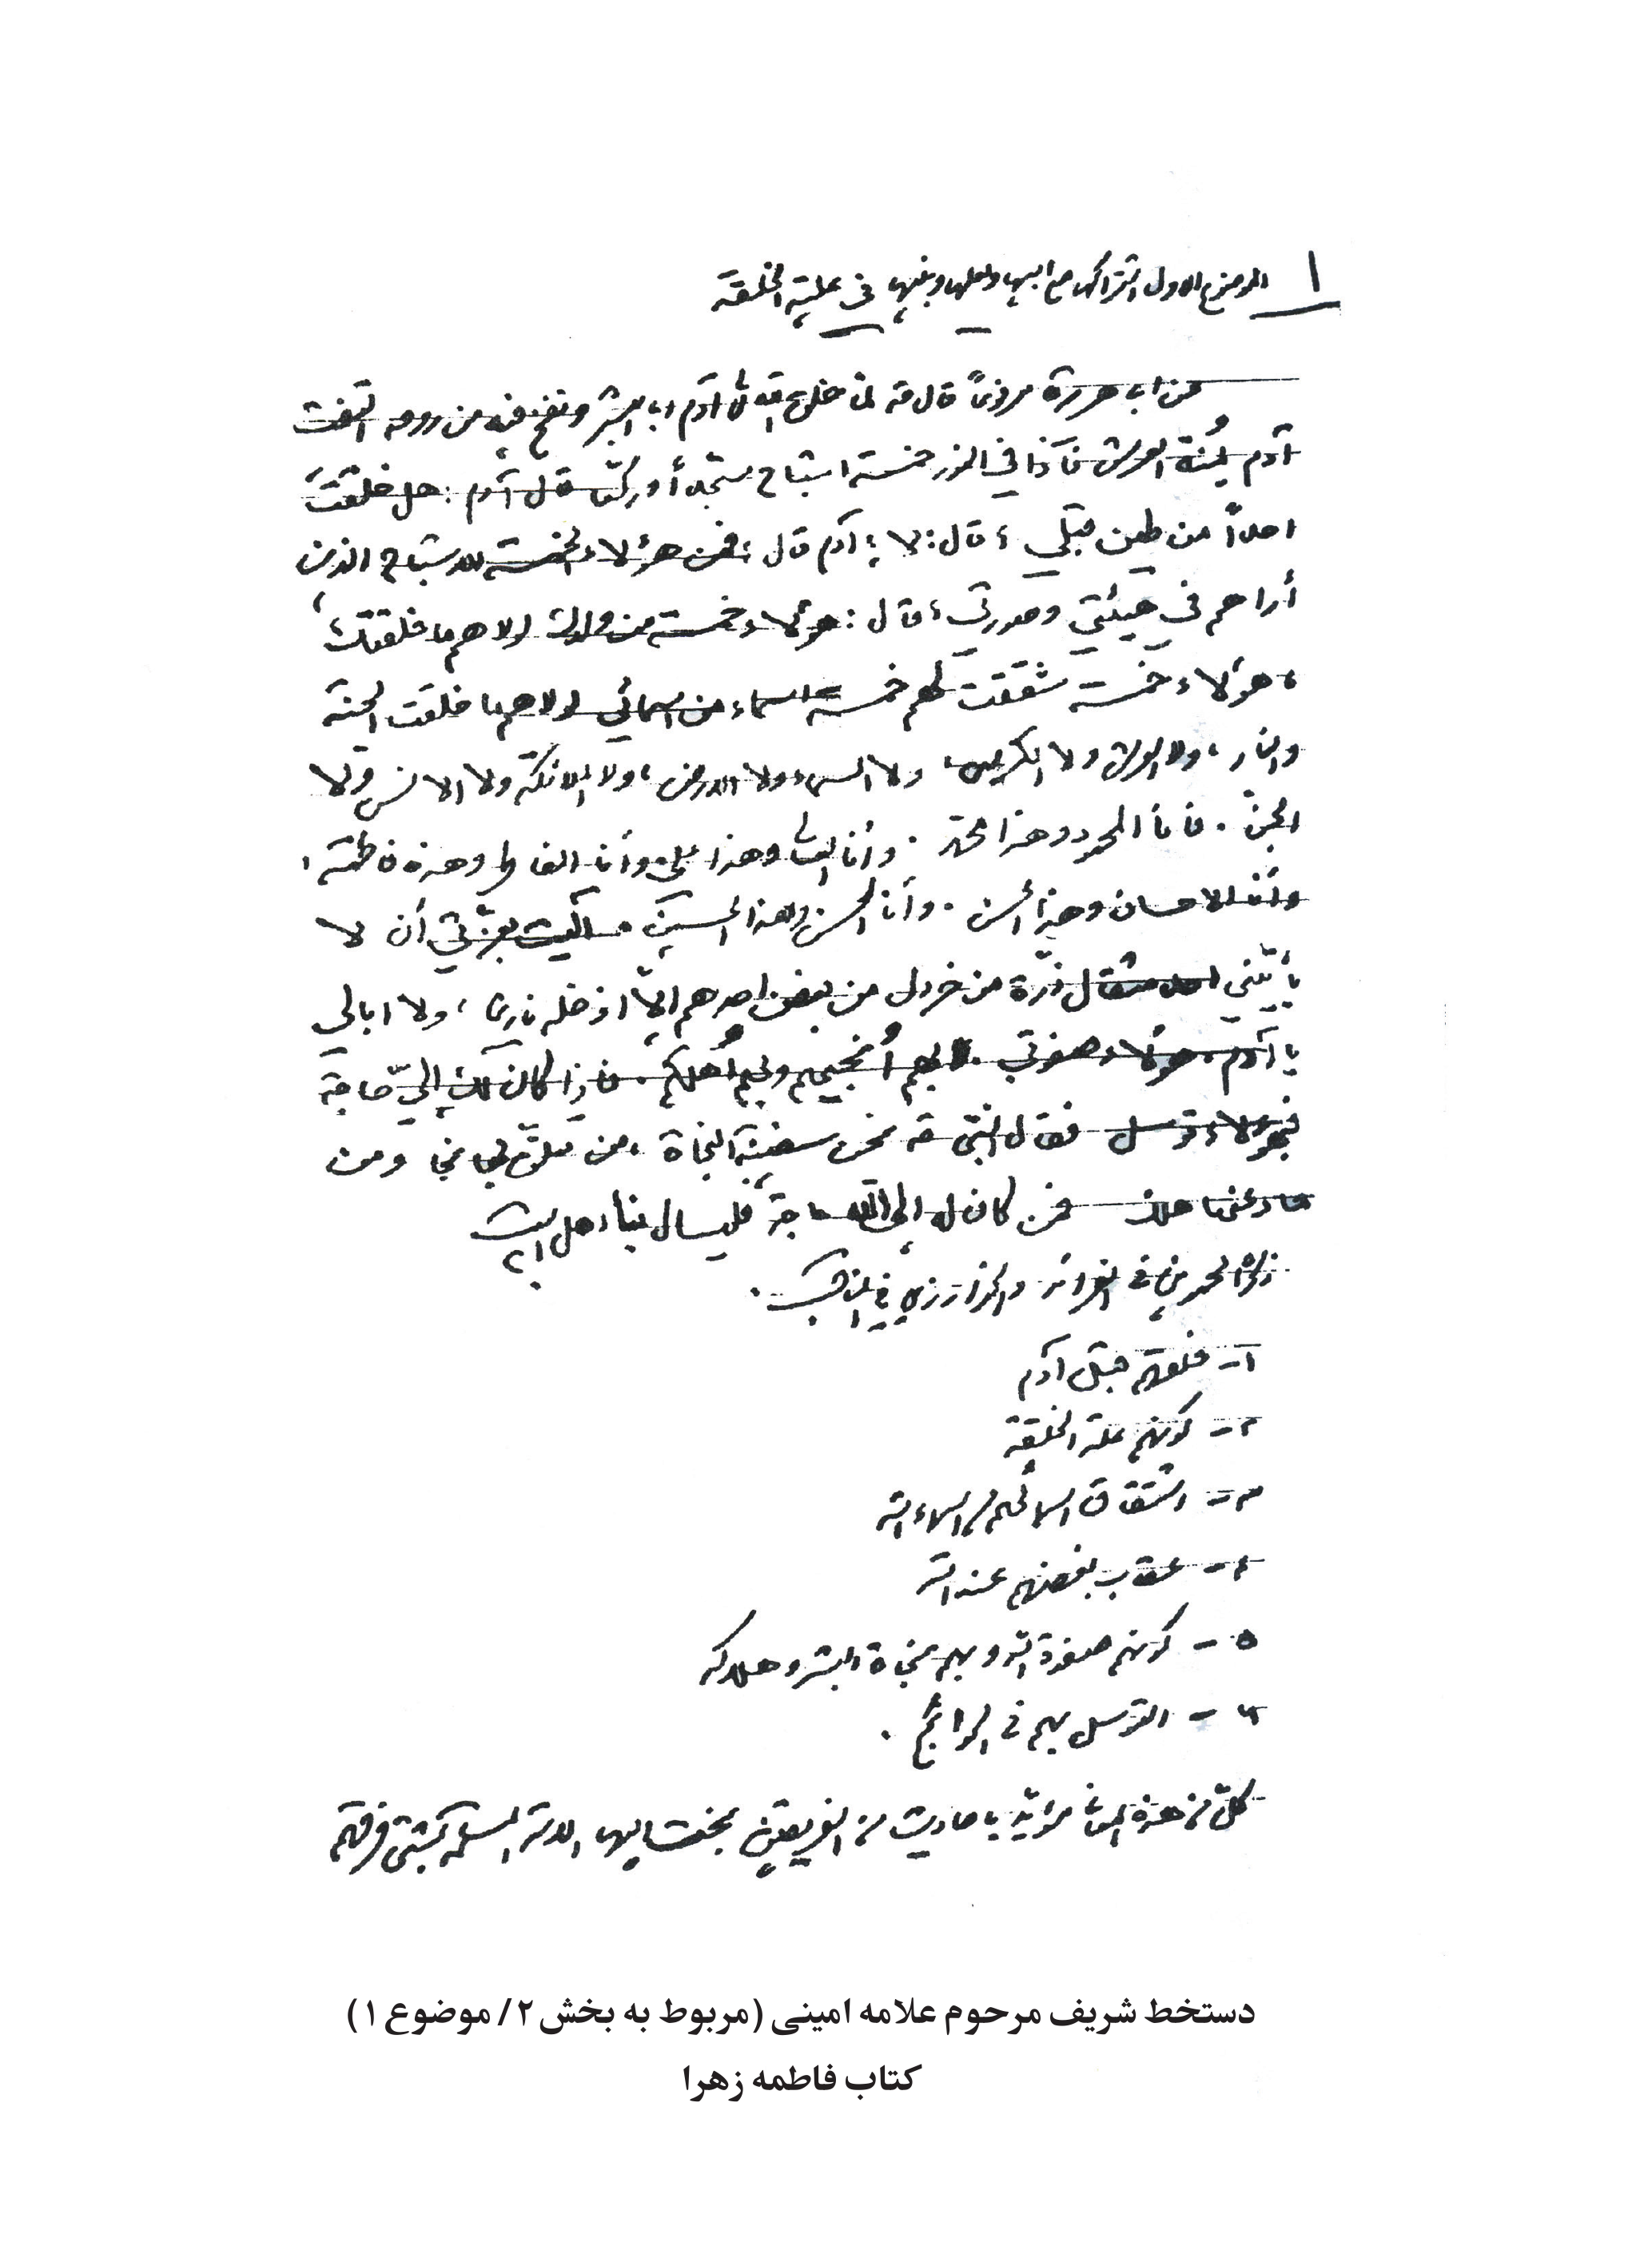 ١ الموضوع الاول اشتراكها مع ابيها وبعلها وبنيها في علية الخلقة
عن ابي هريرة مرفوعاً قال ص لما خلق الله تعالى آدم ابا البشر ونفخ فيه من روحه التفت
آدم يمنة العرش فاذا في النور خمسة اشباح سجداً وركعا قال آدم : هل خلقت
احداً من طين قبلي ؟ قال : لا يا آدم قال : فمن هؤلاء الخمسة الاشباح الذين
أراهم في هيئتي وصورتي ؟ قال : هؤلاء خمسة من ولدك لولاهم ما خلقتك ،
، هؤلاء خمسة شققت لهم خمسة اسماء من اسمائي لولاهم ما خلقت الجنة
والنار ، ولا العرش ولا الكرسي ، ولا السماء ولا الارض ، ولا الملائكة ولا الانس ولا
الجن . فانا المحمود وهذا محمد . وأنا العالي وهذا علي وأنا الفاطر وهذه فاطمة ،
وأنا الاحسان وهذا الحسن . وأنا المحسن وهذا الحسين . آليت بعزتي أن لا
يأتيني احد مثقال ذرة من خردل من بغض احدهم الّا ادخله ناري ، ولا ابالي
يا آدم . هؤلاء صفوتي . بهم أنجيهم وبهم أهلكهم . فاذا كان لك إليّ حاجة
فبهؤلاء توسل فقال النبي ص نحن سفينة النجاة ، من تعلق بها نجا ومن
حاد عنها هلك فمن كان له إلى الله حاجة فليسال بنا اهل البيت
ذكره الحمويني في الفرائد والخوارزمي في المناقب .
١- خلقهم قبل آدم
٢- كونهم علة الخليقة
٣- اشتقاق اسمائهم من اسماء الله
٤- عقاب بغضهم عند الله
٥- كونهم صفوة الله وبهم نجاة البشر وهلاكه
٦- التوسل بهم في الحوائج .
كلّ من هذه مؤيد باحاديث من الفريقين بخعت اليها الامة المسلمة بشتى فرقهم
دستخط شریف مرحوم علامه امینی (مربوط به بخش ۲/ موضوع ۱)
کتاب فاطمه زهرا